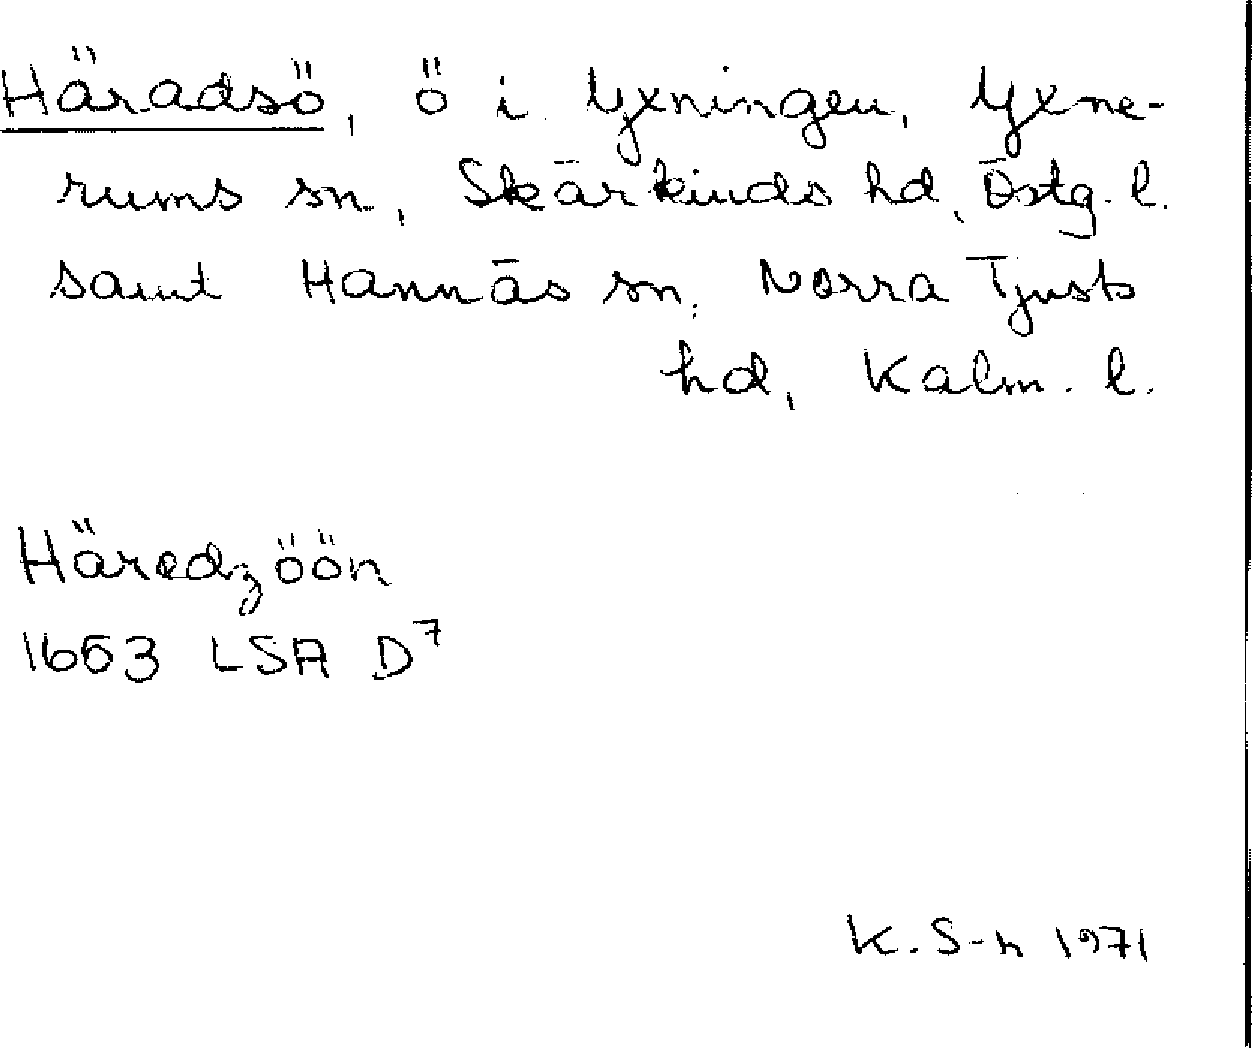 Häradsö, ö i Yxningen, Yxne-
rums sn, Skärkinds hd, Östg. l.
samt Hannäs sn, Norra Tjusts
hd, Kalm. l.
Häredzöön
1653 LSA D7
K. S-n 1971